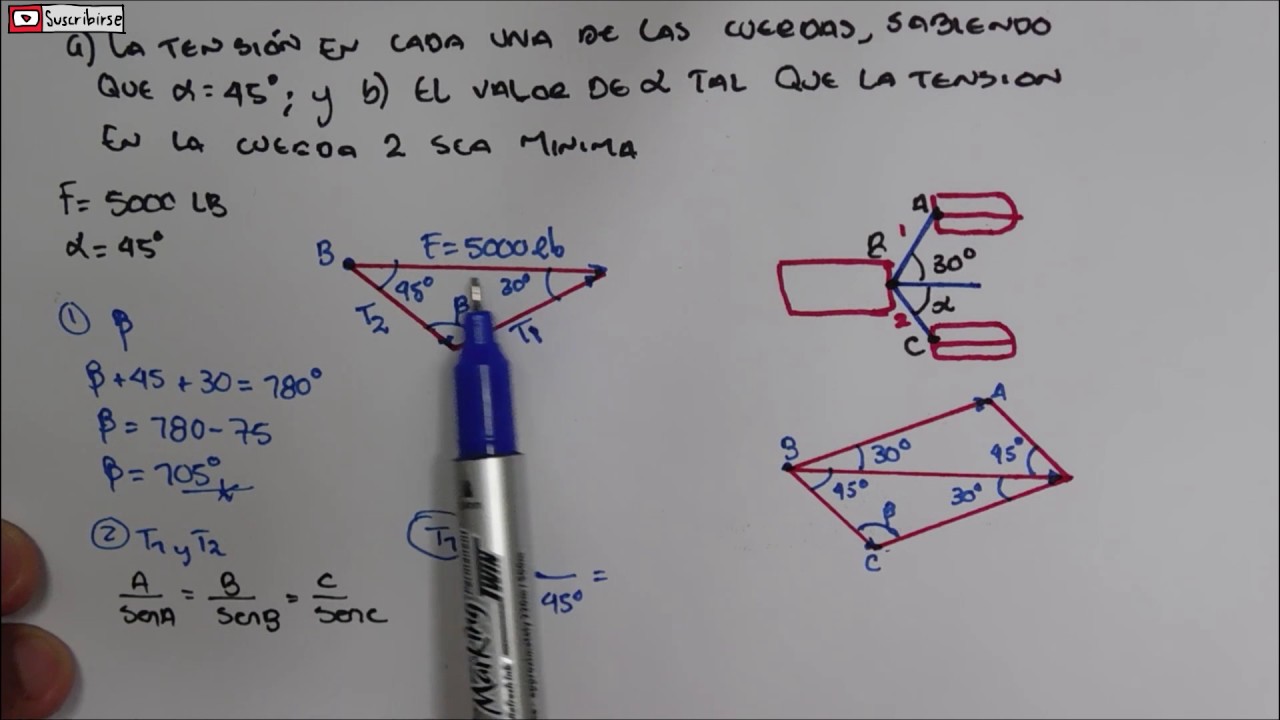 Suscribirse
a) LA TENSIÓN EN CADA UNA DE LAS CUERDAS, SABIENDO
QUE α = 45°; y b) EL VALOR DE α TAL QUE LA TENSION
EN LA CUERDA 2 SEA MINIMA
F = 5000 LB
α = 45°
B F = 5000 lb
45° 30°
β
T2 T1
① β
β + 45 + 30 = 180°
β = 180 - 75
β = 105°
② T1 y T2
A/SenA = B/SenB = C/SenC
T1
45° =
A
1
B 30°
α
2
C
A
B 30° 45°
45° 30°
β
C
Marking TWIN